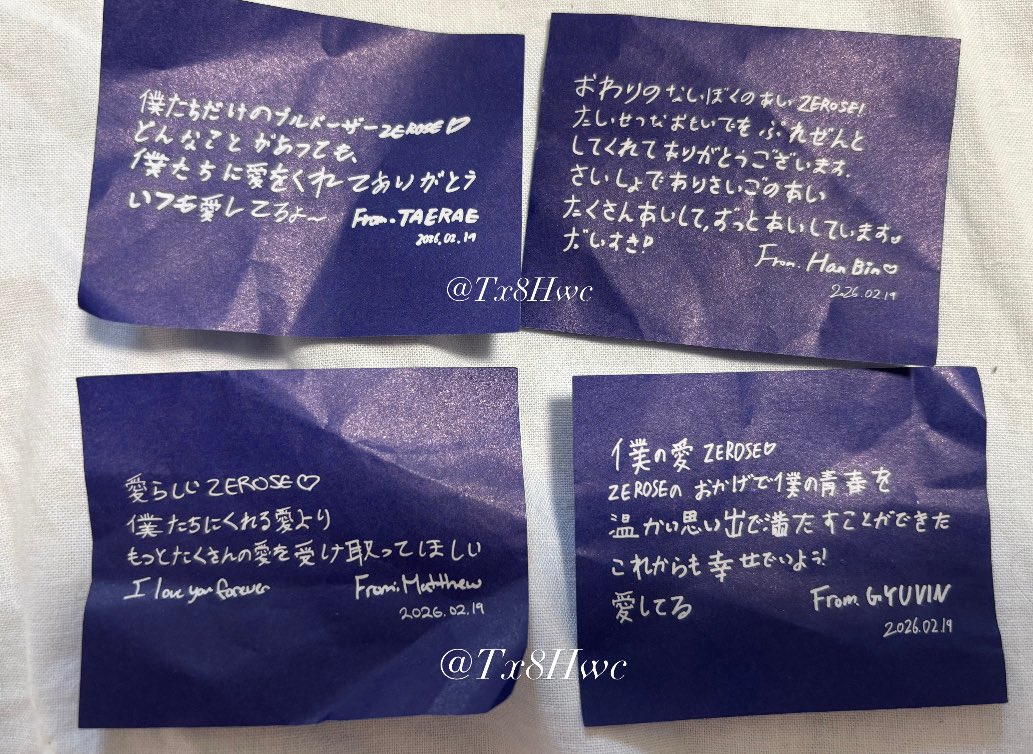 僕たちだけのブルドーザーZEROSE♡
どんなことがあっても、
僕たちに愛をくれてありがとう
いつも愛してるよ～
From. TAERAE
2026.02.19
おわりのないぼくのあいZEROSE!
たいせつなおもいでを ぷれぜんと
してくれてありがとうございます.
さいしょでありさいごのあい
たくさんあいして, ずっとあいしています♡
だいすき!
From. Han Bin♡
226.02.19
@Tx8Hwc
愛らしい ZEROSE♡
僕たちにくれる愛より
もっとたくさんの愛を受け取ってほしい
I love you forever
From. Matthew
2026.02.19
僕の愛 ZEROSE♡
ZEROSEの おかげで僕の青春を
温かい思い出で満たすことができた
これからも幸せでいよう!
愛してる
From. GYUVIN
2026.02.19
@Tx8Hwc